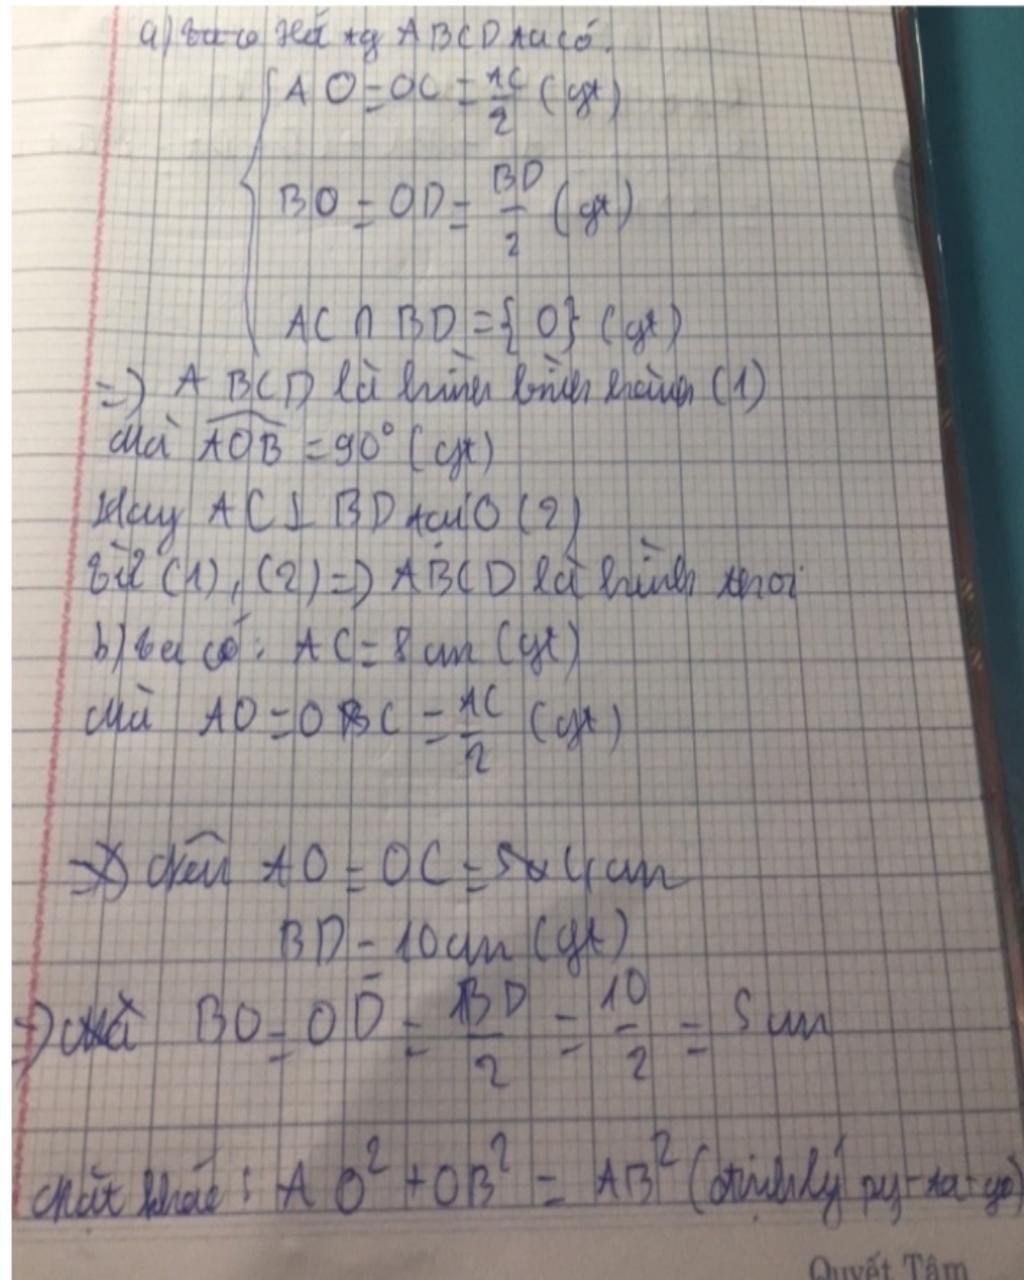 a) Xét tg ABCD ta có.
AO = OC = AC/2 (gt)
BO = OD = BD/2 (gt)
AC ∩ BD = {O} (gt)
=) ABCD là hình bình hành (1)
Mà AOB = 90° (gt)
Hay AC ⊥ BD tại O (2)
Từ (1), (2) =) ABCD là hình thoi
b) Ta có: AC = 8 cm (gt)
Mà AO = OC = AC/2 (gt)
Nên AO = OC = 4 cm
BD = 10 cm (gt)
=) BO = OD = BD/2 = 10/2 = 5 cm
Mặt khác: AO² + OB² = AB² (định lý py-ta-go)
Quyết Tâm